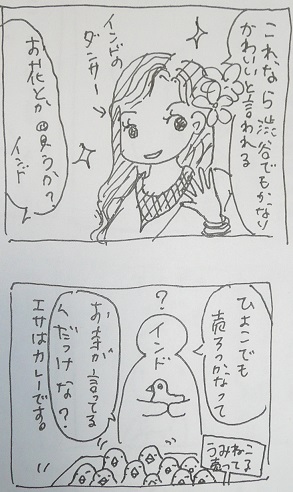 これなら渋谷でもかなり
かわいいと言われる
インドの
ダンサー
お花とか買うか?
インド
ひよこでも
売ろっかなって
?
インド
お が言ってる
んだっけな?
エサはカレーです。
うみねこ
売ってる